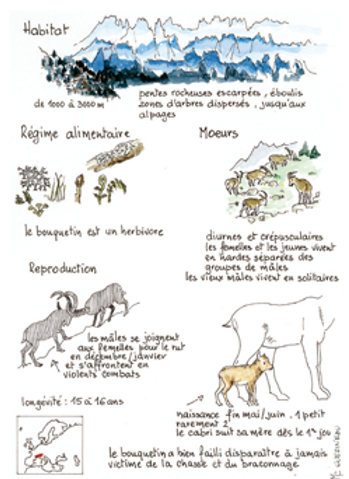 Habitat
de 1000 à 3000 m
pentes rocheuses escarpées, éboulis
zones d'arbres dispersés, jusqu'aux
alpages
Régime alimentaire
Moeurs
le bouquetin est un herbivore
diurnes et crépusculaires
les femelles et les jeunes vivent
en hardes séparées des
groupes de mâles
les vieux mâles vivent en solitaires
Reproduction
les mâles se joignent
aux femelles pour le rut
en décembre/janvier
et s'affrontent en
violents combats
longévité : 15 à 16 ans
naissance fin mai/juin, 1 petit
rarement 2
le cabri suit sa mère dès le 1er jour
le bouquetin a bien failli disparaître à jamais
victime de la chasse et du braconnage